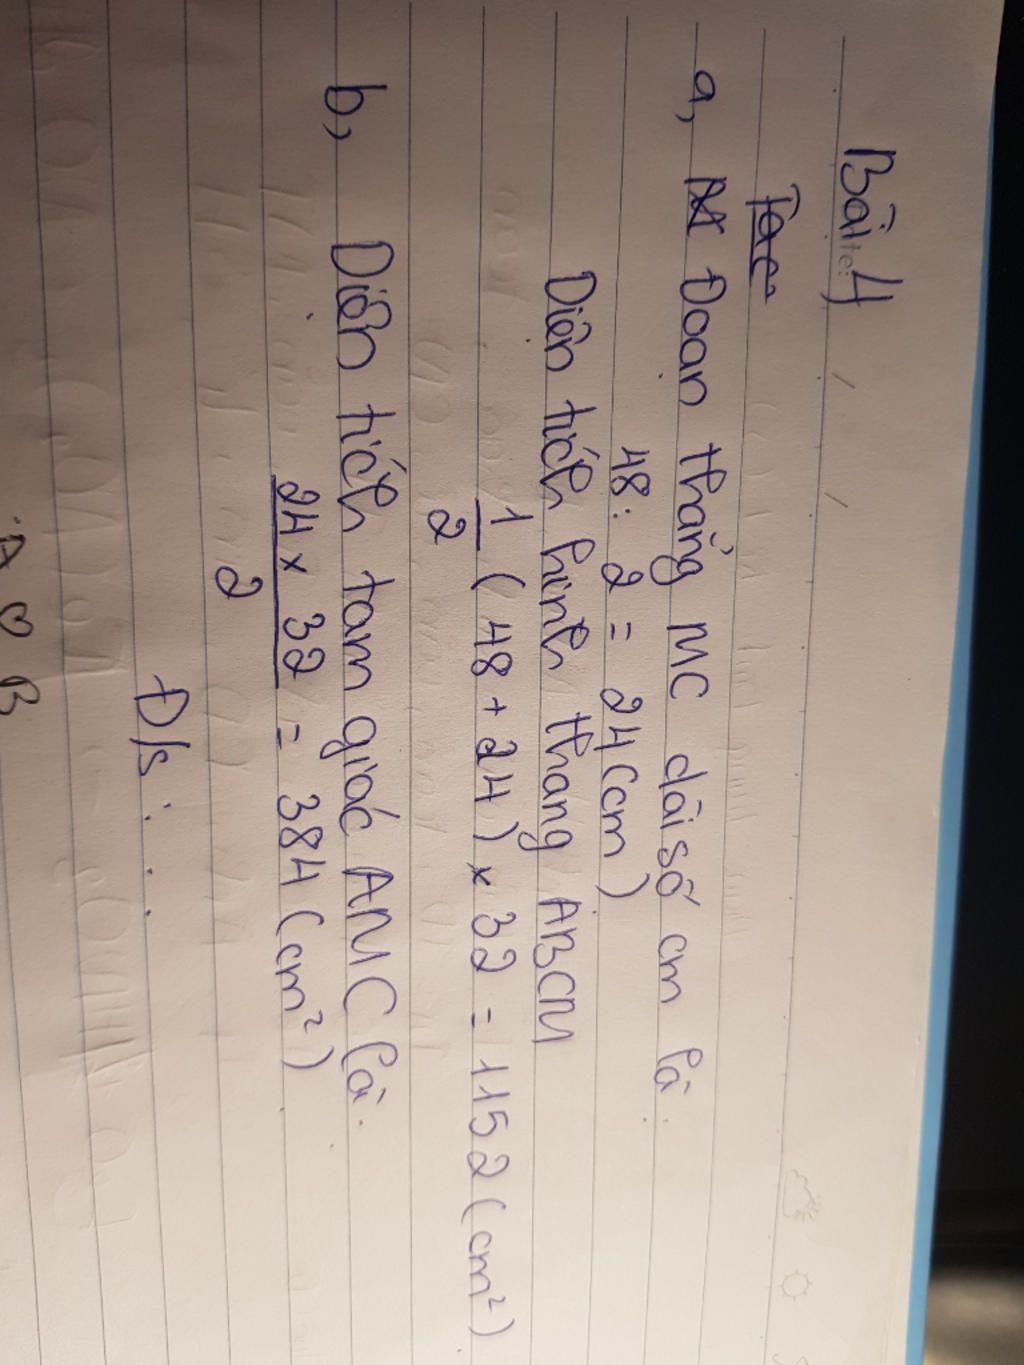 Bài 4
a, Đoạn thẳng MC dài số cm là
48 : 2 = 24 (cm)
Diện tích hình thang ABCM
1/2 (48 + 24) × 32 = 1152 (cm²)
b, Diện tích tam giác AMC là.
24 × 32 / 2 = 384 (cm²)
Đ/s : . .
A B